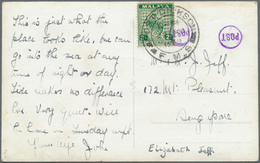 This is just what the
place looks like, we can
go into the sea at any
time of night or day.
Tide makes no difference
here. Very quiet. Will
be home on Tuesday next
Yours
MALAYA
F.M.S.
POST
Jeff
172 Mt. Pleasant.
Singapore
Elizabeth Jeff